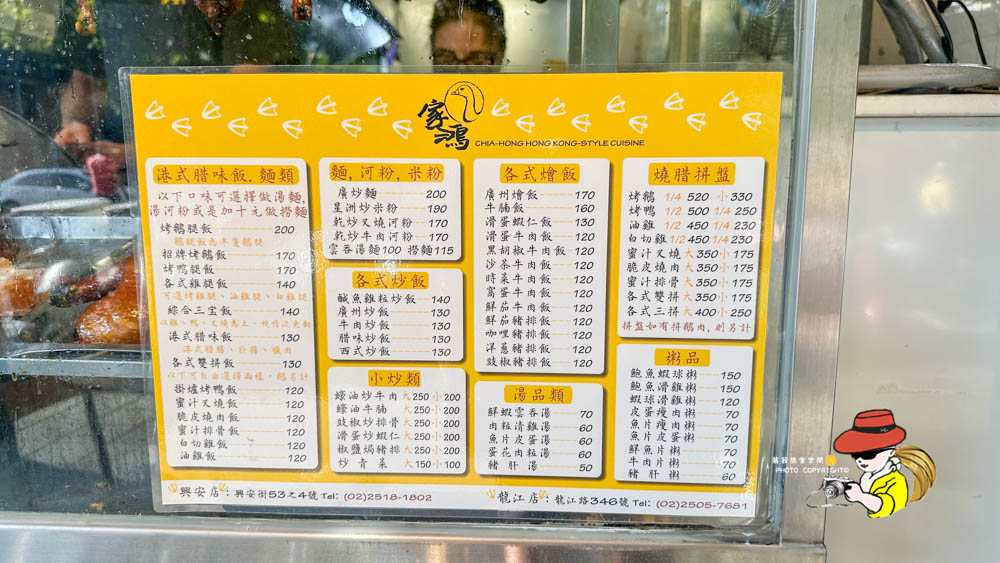 家鴻
CHIA-HONG HONG KONG-STYLE CUISINE
港式腊味飯, 麵類
以下口味可選擇做湯麵,
湯河粉或是加十元做撈麵
烤鵝腿飯 200
鵝腿飯為半隻鵝腿
招牌烤鵝飯 170
烤鴨腿飯 170
各式雞腿飯 140
可選烤雞腿、油雞腿、白雞腿
綜合三宝飯 140
以雞、鴨、叉燒為主,
港式腊味飯 130
港式腊腸、肝腸、臘肉
各式雙拼飯 130
以下可自由選擇兩樣, 鵝另計
掛爐烤鴨飯 120
蜜汁叉燒飯 120
脆皮燒肉飯 120
蜜汁排骨飯 120
白切雞飯 120
油雞飯 120
麵, 河粉, 米粉
廣炒麵 200
星洲炒米粉 190
乾炒叉燒河粉 170
乾炒牛肉河粉 170
雲吞湯麵100 撈麵115
各式炒飯
鹹魚雞粒炒飯 140
廣州炒飯 130
牛肉炒飯 130
腊味炒飯 130
西式炒飯 130
小炒類
蠔油炒牛肉 大250 小200
蠔油牛腩 大250 小200
豉椒炒排骨 大250 小200
滑蛋炒蝦仁 大250 小200
椒鹽焗豬排 大250 小200
炒青菜 大150 小100
各式燴飯
廣州燴飯 170
牛腩飯 160
滑蛋蝦仁飯 130
滑蛋牛肉飯 120
黑胡椒牛肉飯 120
沙茶牛肉飯 120
時菜牛肉飯 120
窩蛋牛肉飯 120
鮮茄牛肉飯 120
鮮茄豬排飯 120
咖哩豬排飯 120
洋蔥豬排飯 120
豉椒豬排飯 120
湯品類
鮮蝦雲吞湯 70
肉粒清雞湯 60
魚片皮蛋湯 60
蛋花肉粒湯 60
豬肝湯 50
燒腊拼盤
烤鵝 1/4 520 小330
烤鴨 1/2 500 1/4 250
油雞 1/2 450 1/4 230
白切雞 1/2 450 1/4 230
蜜汁叉燒 大350 小175
脆皮燒肉 大350 小175
蜜汁排骨 大350 小175
各式雙拼 大350 小175
各式三拼 大400 小250
拼盤如有拼鵝肉, 則另計
粥品
鮑魚蝦球粥 150
鮑魚滑雞粥 150
蝦球滑雞粥 120
皮蛋瘦肉粥 70
魚片瘦肉粥 70
魚片皮蛋粥 70
鮮魚片粥 70
牛肉片粥 70
豬肝粥 60
興安店: 興安街53之4號 Tel: (02)2518-1802
龍江店: 龍江路346號 Tel: (02)2505-7681
PHOTO COPYRIGHT